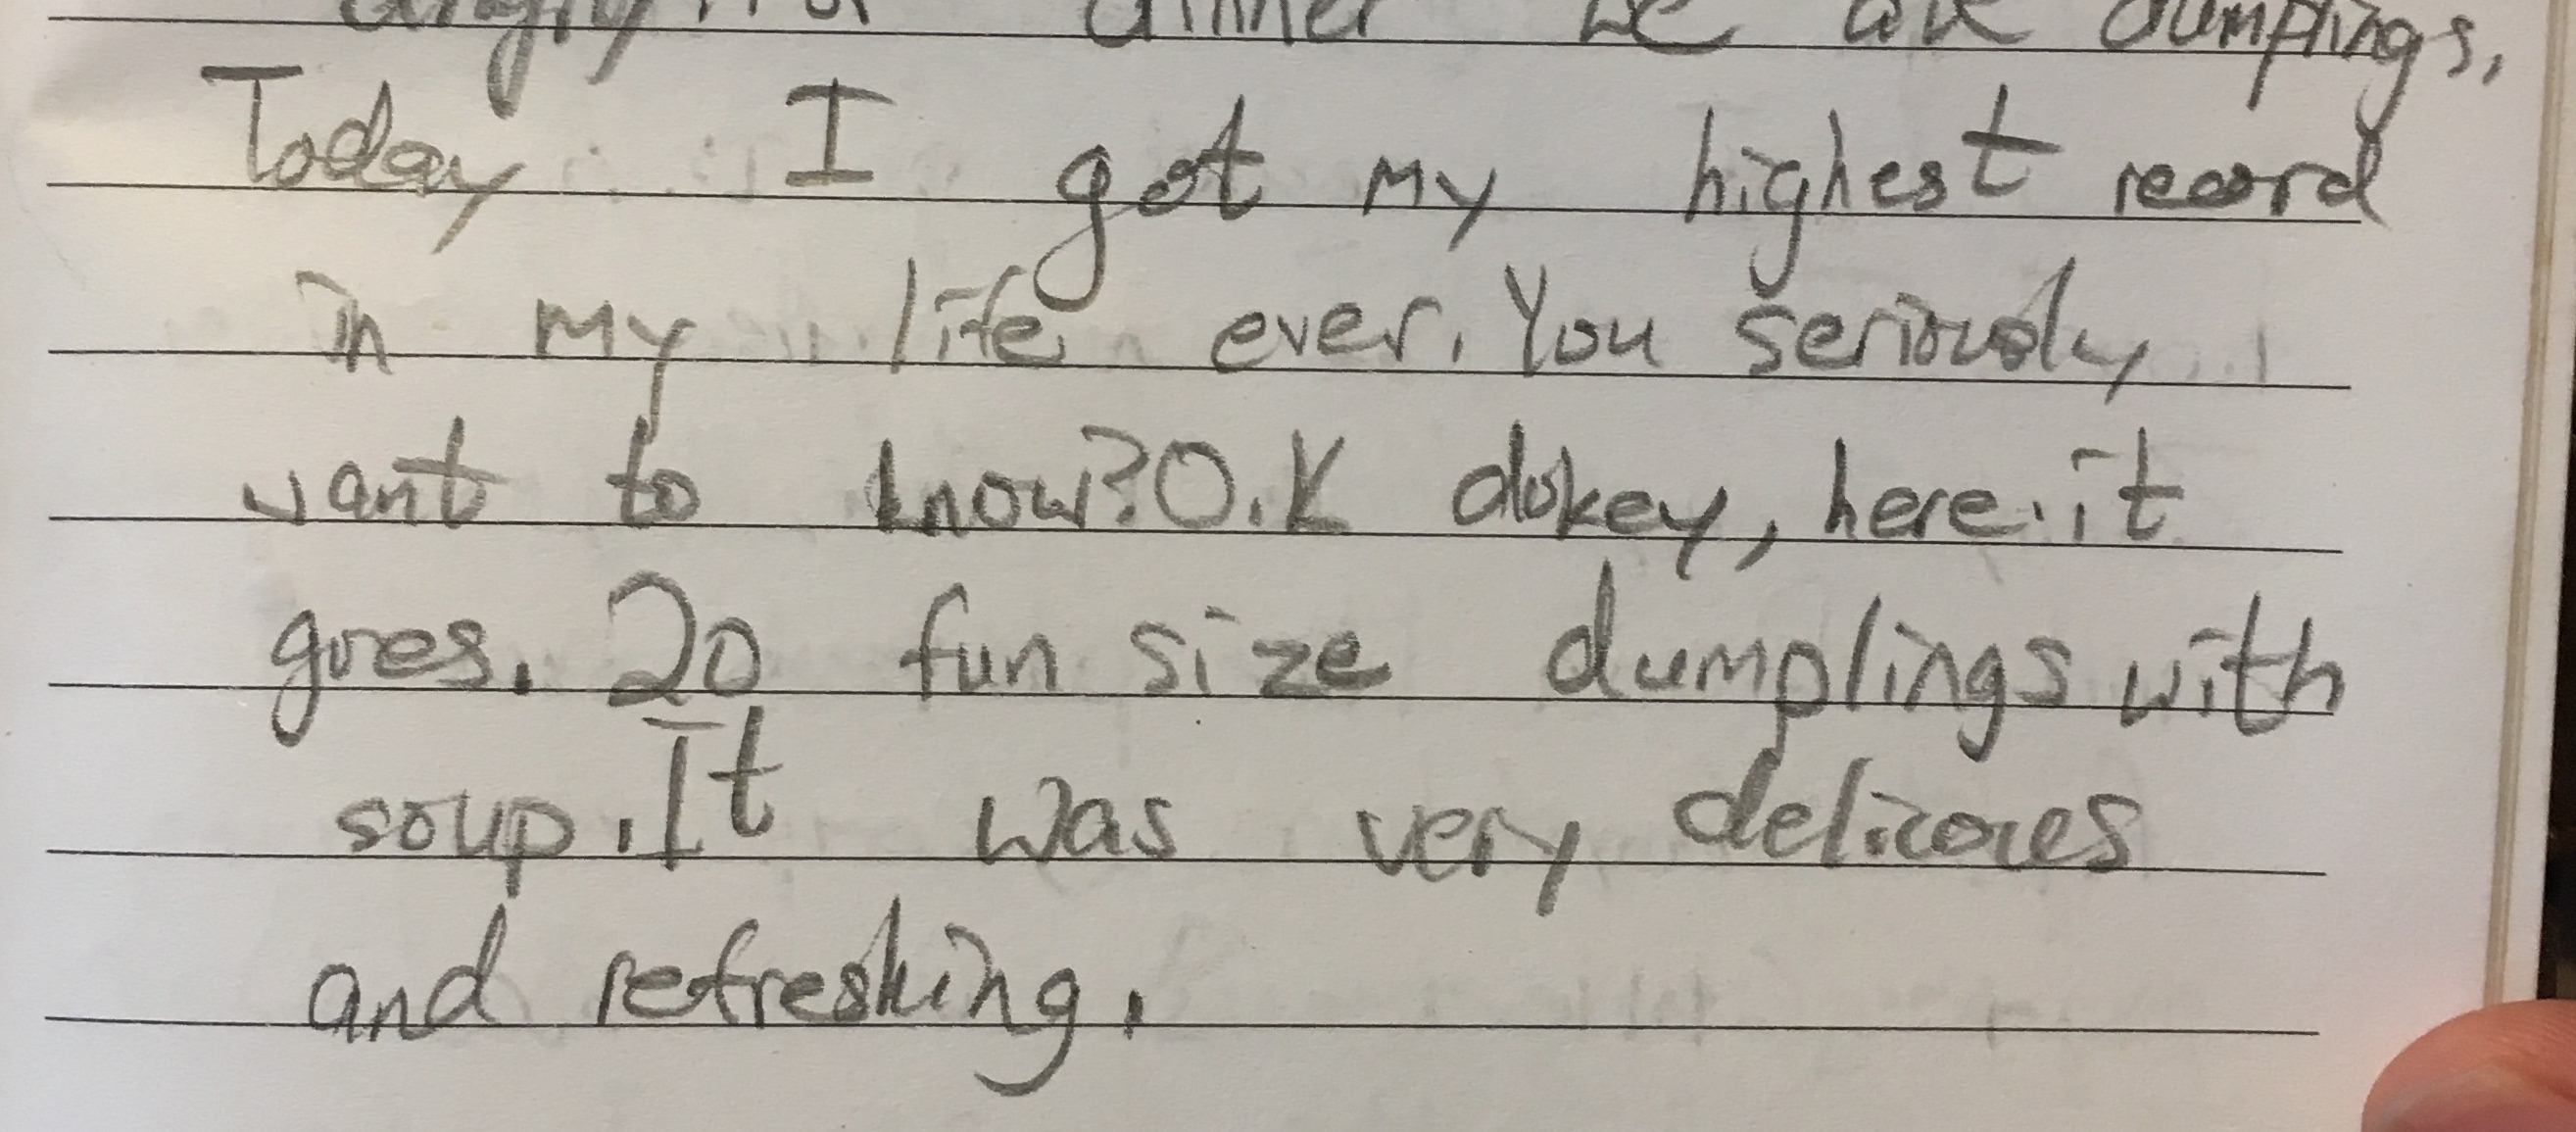 dinner we ate dumplings.
Today I got my highest record
in my life ever. You seriously
want to know? O.K dokey, here it
goes. 20 fun size dumplings with
soup. It was very delicoues
and refreshing.